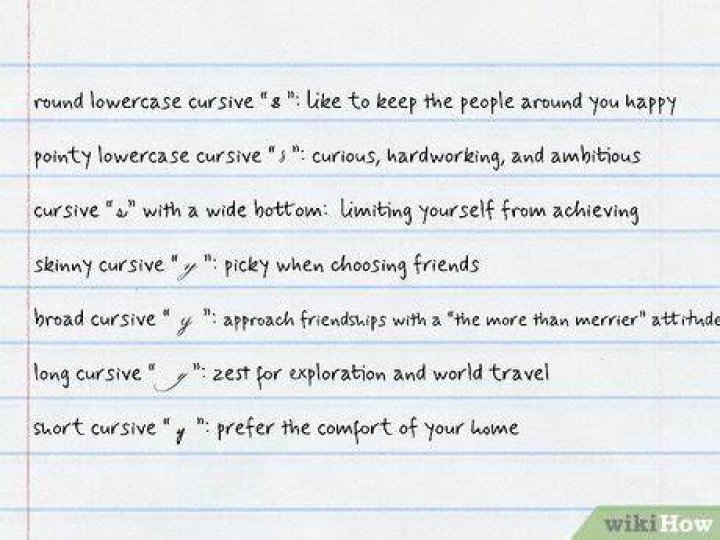 round lowercase cursive "s": like to keep the people around you happy
pointy lowercase cursive "s": curious, hardworking, and ambitious
cursive "s" with a wide bottom: limiting yourself from achieving
skinny cursive "y": picky when choosing friends
broad cursive "y": approach friendships with a "the more than merrier" attitude
long cursive "y": zest for exploration and world travel
short cursive "y": prefer the comfort of your home
wikiHow